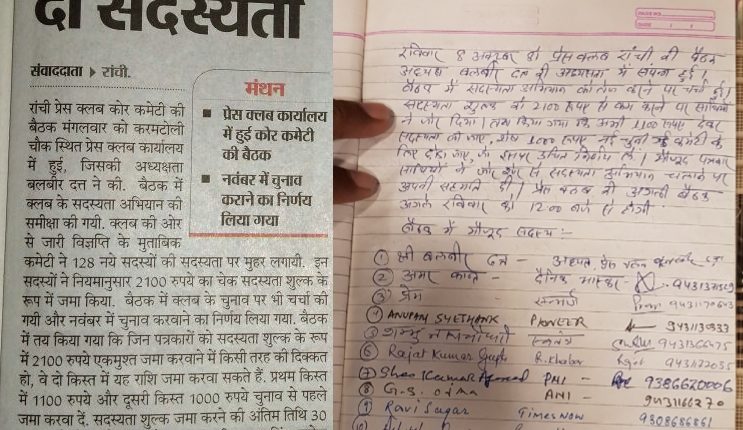 दो सदस्यता
संवाददाता ▶ रांची.
रांची प्रेस क्लब कोर कमेटी की
बैठक मंगलवार को करमटोली
चौक स्थित प्रेस क्लब कार्यालय
में हुई, जिसकी अध्यक्षता
बलबीर दत्त ने की. बैठक में
क्लब के सदस्यता अभियान की
समीक्षा की गयी. क्लब की ओर
से जारी विज्ञप्ति के मुताबिक
मंथन
■ प्रेस क्लब कार्यालय
में हुई कोर कमेटी
की बैठक
■ नवंबर में चुनाव
कराने का निर्णय
लिया गया
कमेटी ने 128 नये सदस्यों की सदस्यता पर मुहर लगायी. इन
सदस्यों ने नियमानुसार 2100 रुपये का चेक सदस्यता शुल्क के
रूप में जमा किया. बैठक में क्लब के चुनाव पर भी चर्चा की
गयी और नवंबर में चुनाव करवाने का निर्णय लिया गया. बैठक
में तय किया गया कि जिन पत्रकारों को सदस्यता शुल्क के रूप
में 2100 रुपये एकमुश्त जमा करवाने में किसी तरह की दिक्कत
हो, वे दो किस्त में यह राशि जमा करवा सकते हैं. प्रथम किस्त
में 1100 रुपये और दूसरी किस्त 1000 रुपये चुनाव से पहले
जमा करवा दें. सदस्यता शुल्क जमा करने की अंतिम तिथि 30
रविवार 8 अक्टूबर को प्रेस क्लब रांची की बैठक
अध्यक्ष बलबीर दत्त की अध्यक्षता में संपन्न हुई।
बैठक में सदस्यता अभियान को तेज करने पर चर्चा हुई।
सदस्यता शुल्क को 2100 रुपए से कम करने पर साथियों
ने जोर दिया। तय किया गया कि अभी 1100 रुपए देकर
सदस्यता ली जाए, शेष 1000 रुपए नई चुनी गई कमेटी के
लिए छोड़ा जाए, जो इसपर उचित निर्णय ले। मौजूद पत्रकार
साथियों ने जोर शोर से सदस्यता अभियान चलाने पर
अपनी सहमति दी। प्रेस क्लब की अगली बैठक
अगले रविवार को 12:00 बजे से होगी।
बैठक में मौजूद सदस्य :-
① श्री बलबीर दत्त - अध्यक्ष, प्रेस क्लब
② अमर कान्त - दैनिक भास्कर -
③ प्रेम - सन्मार्ग
④ ANUPAM SHESHANK PIONEER
⑤ शम्भु
⑥ Rajat Kumar Gupta R.Khabar
⑦ Sheo Kumar PNI - 9386620006
⑧ G.S. ANI - 9431166270
⑨ Ravi Sagar Times NOW 9308686861